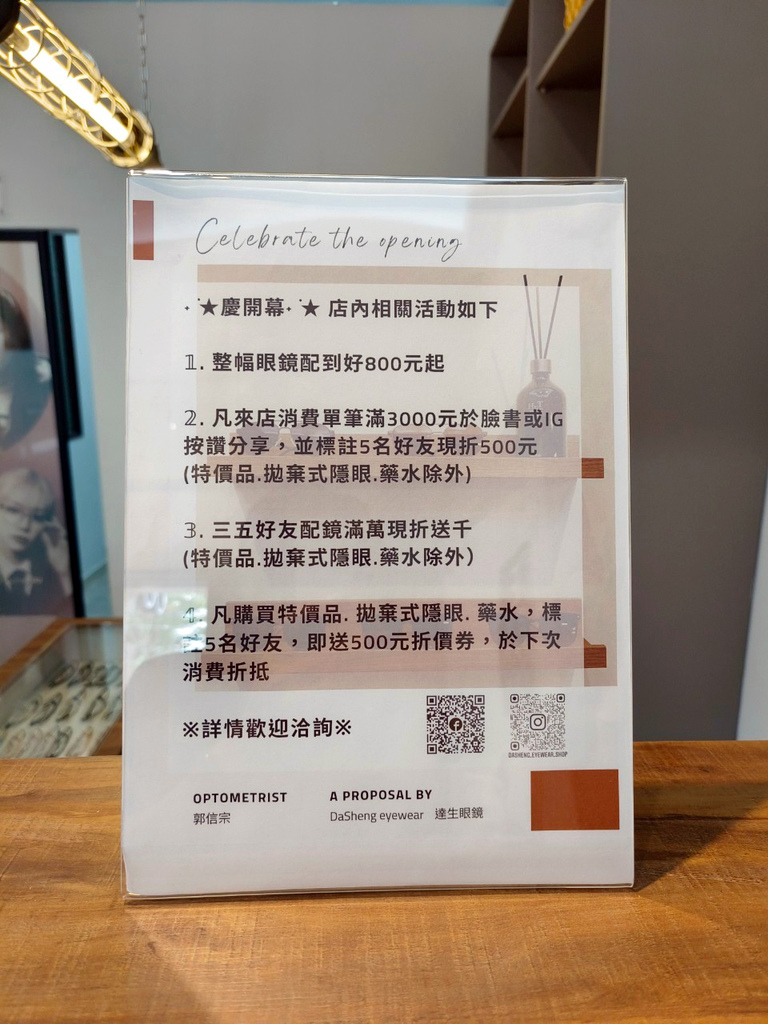 Celebrate the opening
˖ ࣪★慶開幕˖ ࣪★ 店內相關活動如下
1. 整幅眼鏡配到好800元起
2. 凡來店消費單筆滿3000元於臉書或IG
按讚分享，並標註5名好友現折500元
(特價品.拋棄式隱眼.藥水除外)
3. 三五好友配鏡滿萬現折送千
(特價品.拋棄式隱眼.藥水除外)
4. 凡購買特價品. 拋棄式隱眼. 藥水，標
註5名好友，即送500元折價券，於下次
消費折抵
※詳情歡迎洽詢※
DASHENG.EYEWEAR.SHOP
OPTOMETRIST
郭信宗
A PROPOSAL BY
DaSheng eyewear 達生眼鏡